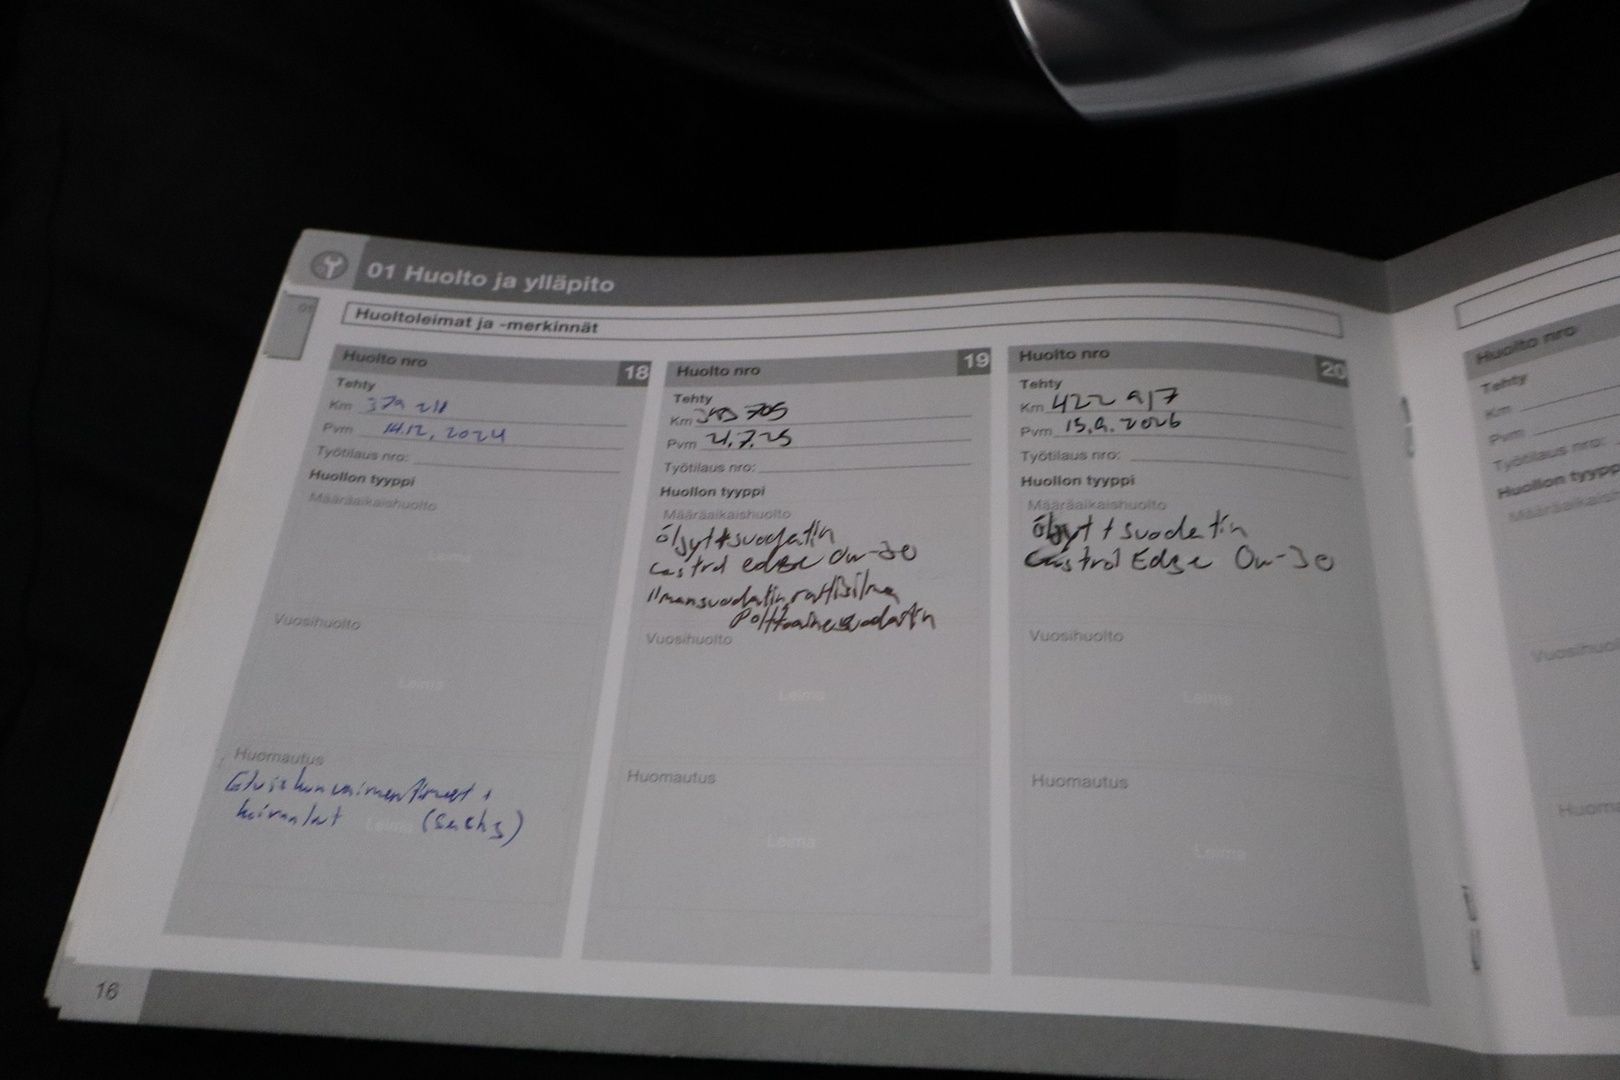 01 Huolto ja ylläpito
01
Huoltoleimat ja -merkinnät
Huolto nro 18
Tehty
Km 379 211
Pvm 14.12.2024
Työtilaus nro:
Huollon tyyppi
Määräaikaishuolto
Leima
Vuosihuolto
Leima
Huomautus
Etuiskunvaimentimet +
koiranluut (Sachs)
Leima
Huolto nro 19
Tehty
Km 705
Pvm 21.7.25
Työtilaus nro:
Huollon tyyppi
Määräaikaishuolto
öljyt+suodatin
castrol edge 0w-30
ilmansuodatin,
Polttoainesuodatin
Vuosihuolto
Leima
Huomautus
Leima
Huolto nro 20
Tehty
Km 422 917
Pvm 15.9.2026
Työtilaus nro:
Huollon tyyppi
Määräaikaishuolto
öljyt + suodatin
Castrol Edge 0w-30
Vuosihuolto
Leima
Huomautus
Leima
16
Huolto nro
Tehty
Km
Pvm
Työtilaus nro: